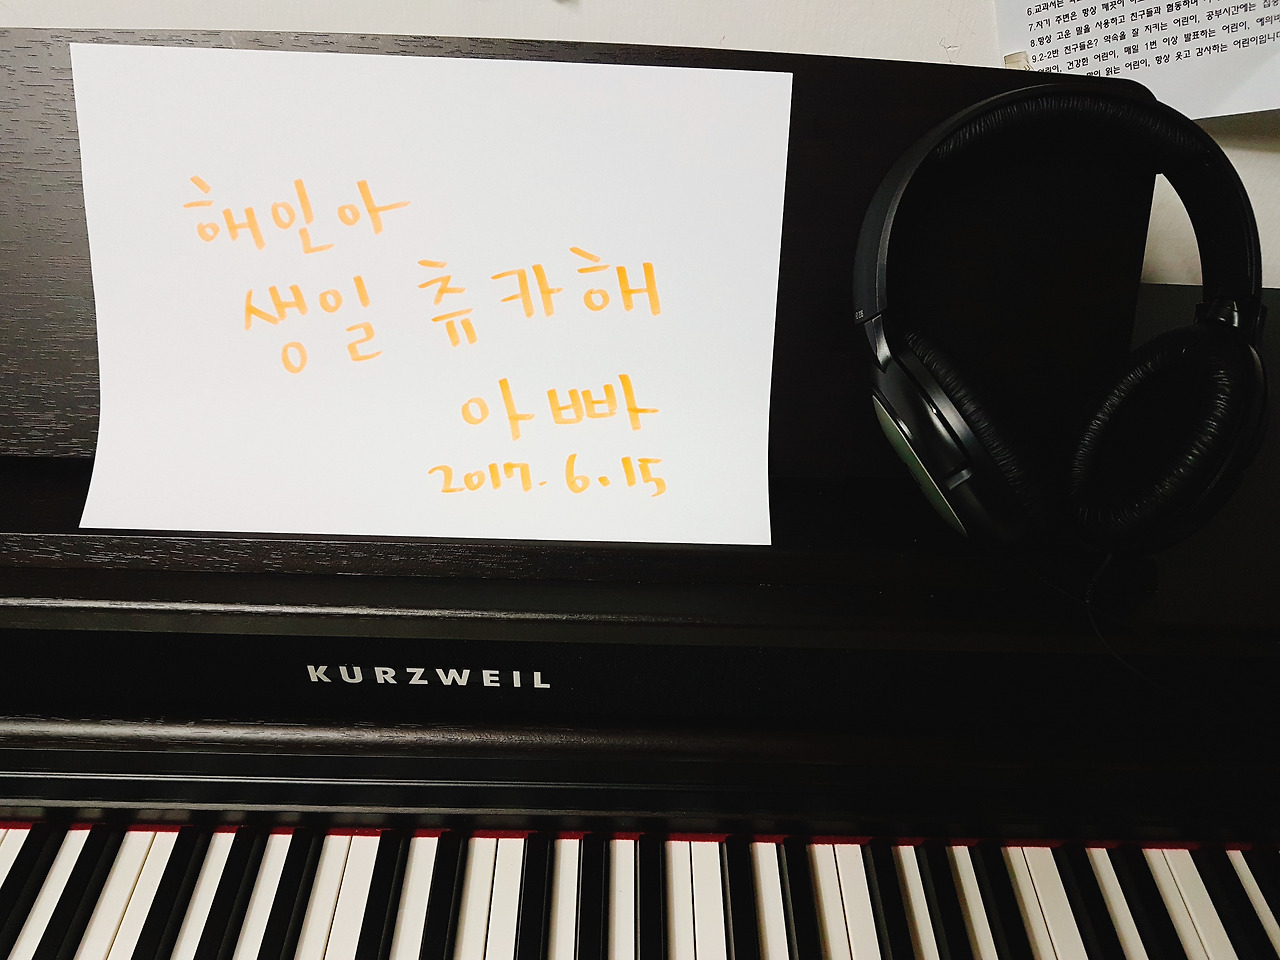 해인아
생일 츄카해
아빠
2017.6.15
KURZWEIL
6.교과서는
7.자기 주변은 항상 깨끗이
8.항상 고운 말을 사용하고 친구들과 협동하며
9.2-2반 친구들은? 약속을 잘 지키는 어린이, 공부시간에는 집중
어린이, 건강한 어린이, 매일 1번 이상 발표하는 어린이, 예의
읽는 어린이, 항상 웃고 감사하는 어린이입니다